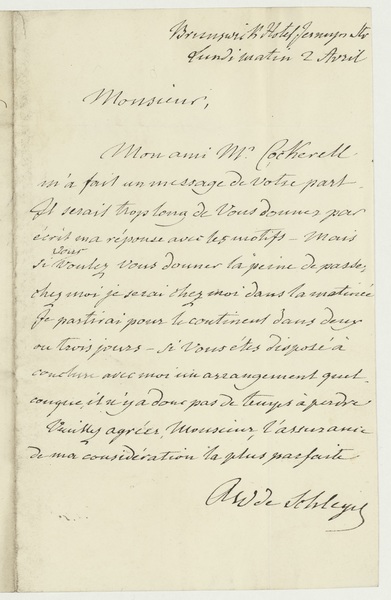 Brunswick Hotel Jermyn Str
Lundi matin 2 Avril
Monsieur,
Mon ami Mr Cockerell
m'a fait un message de votre part.
Il serait trop long de Vous donner par
écrit ma réponse avec les motifs – Mais
si vous
voulez Vous donner la peine de passer
chez moi je serai chez moi dans la matinée
Je partirai pour le continent dans deux
ou trois jours – si Vous êtes disposé à
conclure avec moi un arrangement quel-
conque, il n'y a donc pas de temps à perdre
Veuillez agréer, Monsieur, l'assurance
de ma considération la plus parfaite
AW de Schlegel